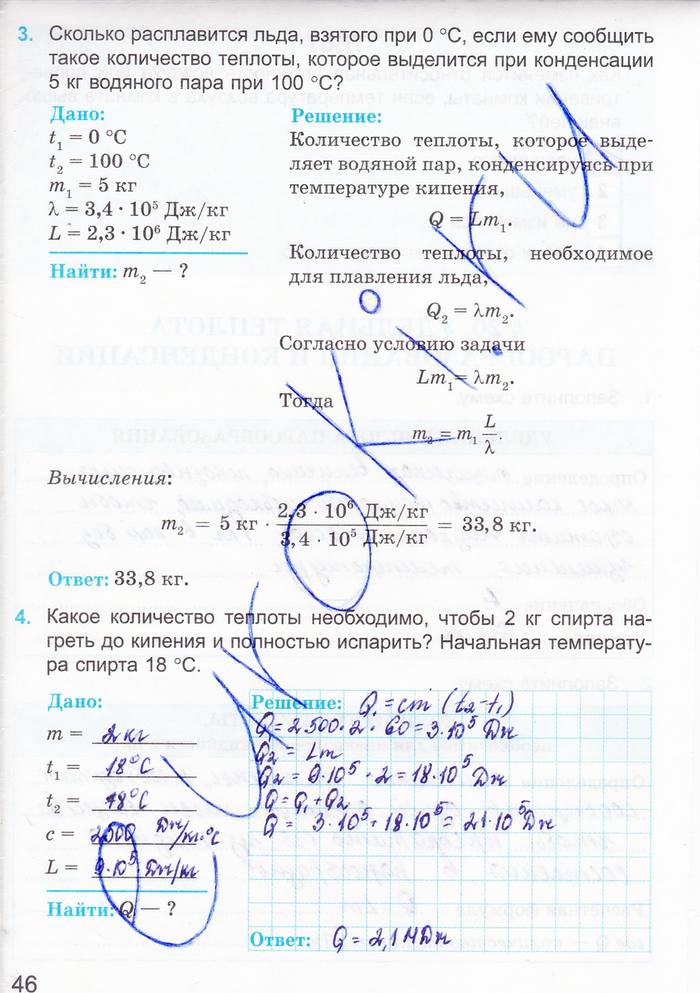 3. Сколько расплавится льда, взятого при 0 °С, если ему сообщить
такое количество теплоты, которое выделится при конденсации
5 кг водяного пара при 100 °С?
Дано:
t₁ = 0 °С
t₂ = 100 °С
m₁ = 5 кг
λ = 3,4 · 10⁵ Дж/кг
L = 2,3 · 10⁶ Дж/кг
Найти: m₂ — ?
Решение:
Количество теплоты, которое выде-
ляет водяной пар, конденсируясь при
температуре кипения,
Q = Lm₁.
Количество теплоты, необходимое
для плавления льда,
Q₂ = λm₂.
Согласно условию задачи
Lm₁ = λm₂.
Тогда
m₂ = m₁ L/λ
Вычисления:
m₂ = 5 кг · 2,3 · 10⁶ Дж/кг / 3,4 · 10⁵ Дж/кг = 33,8 кг.
Ответ: 33,8 кг.
4. Какое количество теплоты необходимо, чтобы 2 кг спирта на-
греть до кипения и полностью испарить? Начальная температу-
ра спирта 18 °С.
Дано:
m = 2 кг
t₁ = 18°С
t₂ = 78°С
c = 2500 Дж/кг·°С
L = 9·10⁵ Дж/кг
Найти: Q — ?
Решение: Q₁ = cm (t₂-t₁)
Q = 2500 · 2 · 60 = 3·10⁵ Дж
Q₂ = Lm
Q₂ = 9·10⁵ · 2 = 18·10⁵ Дж
Q = Q₁ + Q₂
Q = 3·10⁵ + 18·10⁵ = 21·10⁵ Дж
Ответ: Q = 2,1 МДж
46